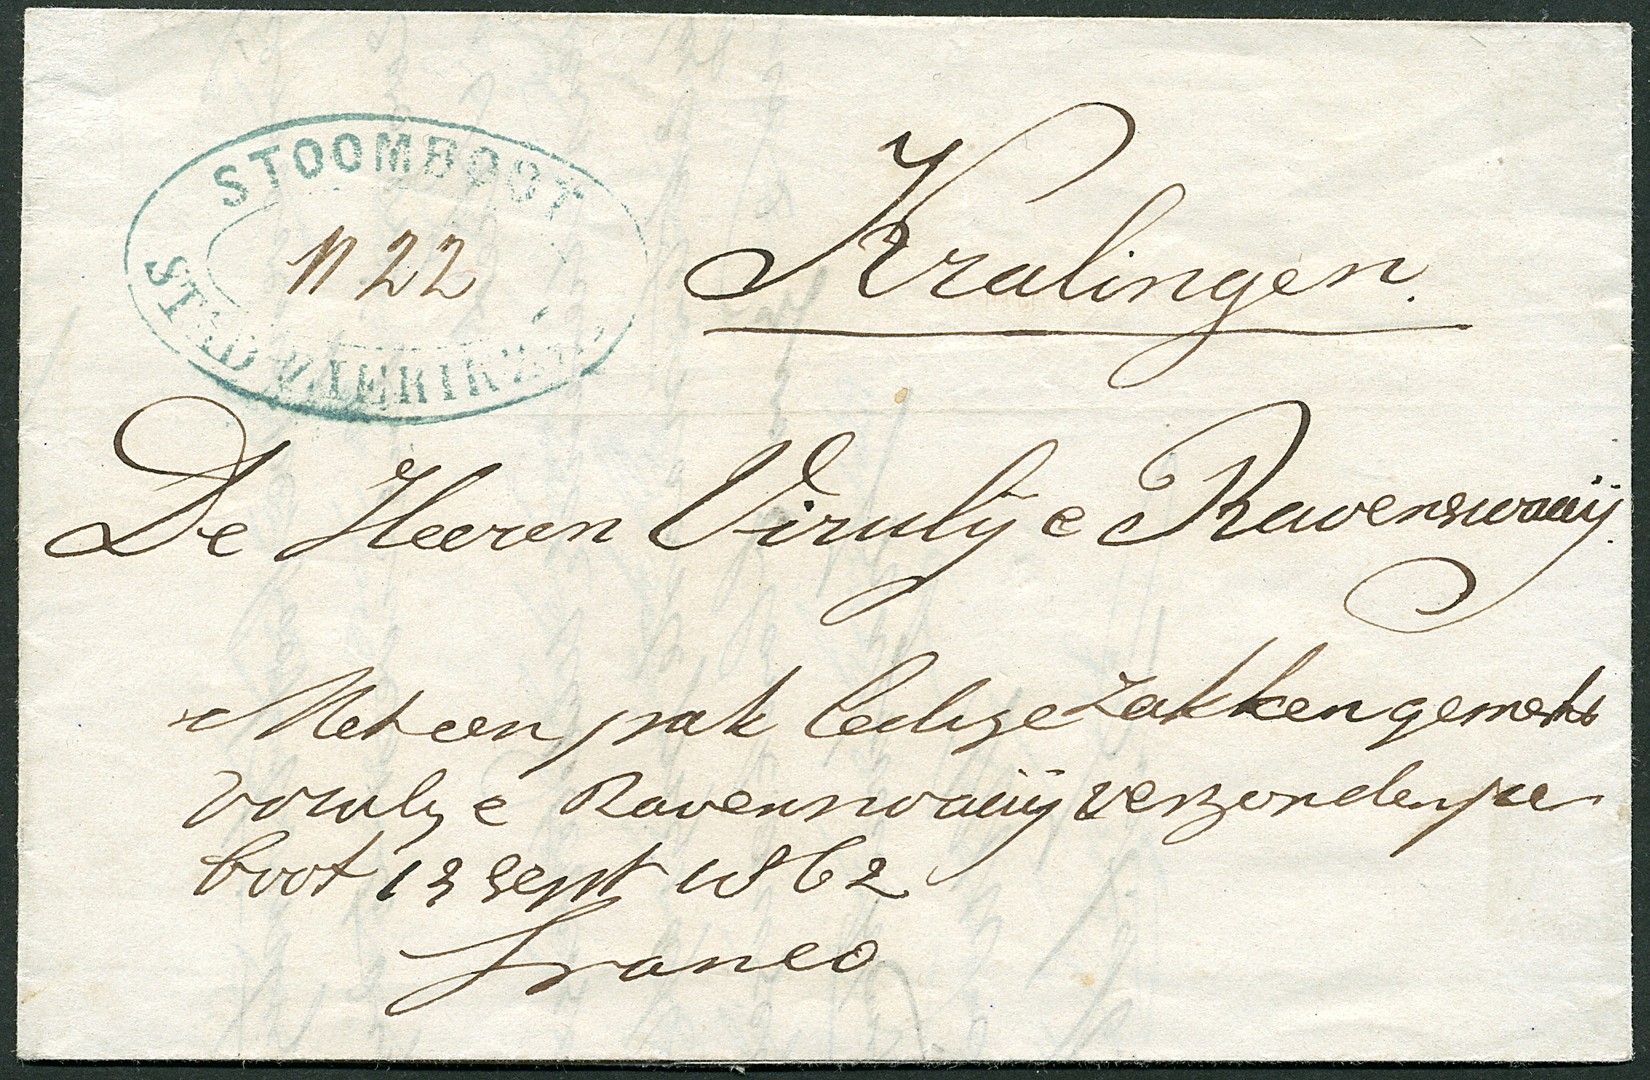 STOOMBOOT
N 22
STAD ZIERIKZEE
Kralingen.
De Heeren Viruly e Ravenswaaij.
Met een pak ledige zakken gemerkt
Viruly e Ravenswaaij verzonden per
boot 13 sept 1862
franco